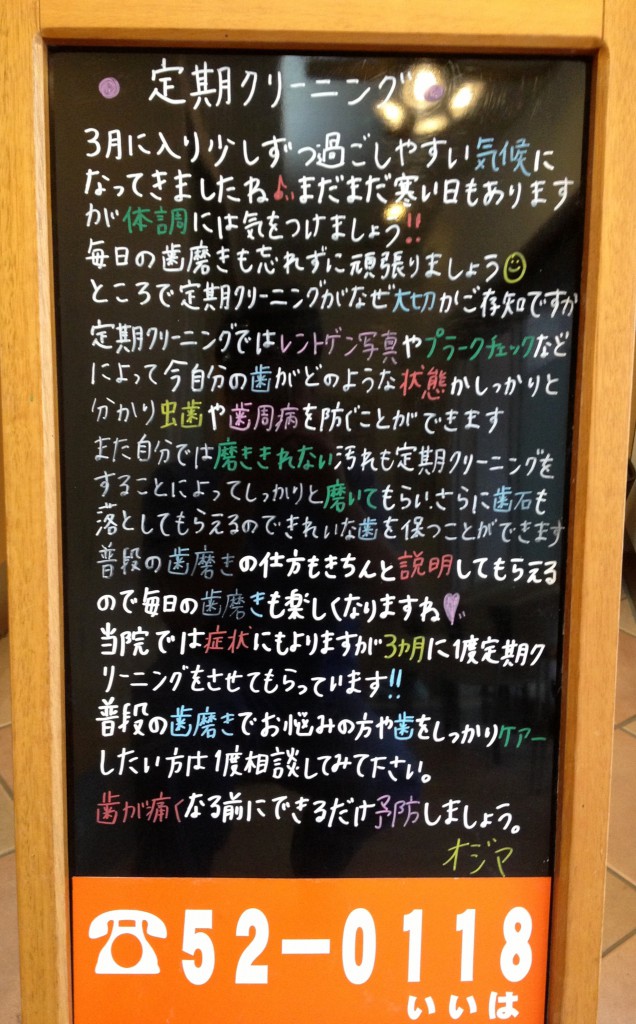 定期クリーニング
3月に入り少しずつ過ごしやすい気候に
なってきましたね♪まだまだ寒い日もあります
が体調には気をつけましょう!!
毎日の歯磨きも忘れずに頑張りましょう
ところで定期クリーニングがなぜ大切かご存知ですか
定期クリーニングではレントゲン写真やプラークチェックなど
によって今自分の歯がどのような状態かしっかりと
分かり虫歯や歯周病を防ぐことができます
また自分では磨ききれない汚れも定期クリーニングを
することによってしっかりと磨いてもらい、さらに歯石も
落としてもらえるのできれいな歯を保つことができます
普段の歯磨きの仕方もきちんと説明してもらえる
ので毎日の歯磨きも楽しくなりますね
当院では症状にもよりますが3カ月に1度定期ク
リーニングをさせてもらっています!!
普段の歯磨きでお悩みの方や歯をしっかりケアー
したい方は1度相談してみて下さい。
歯が痛くなる前にできるだけ予防しましょう。
オジマ
☎52-0118
いいは